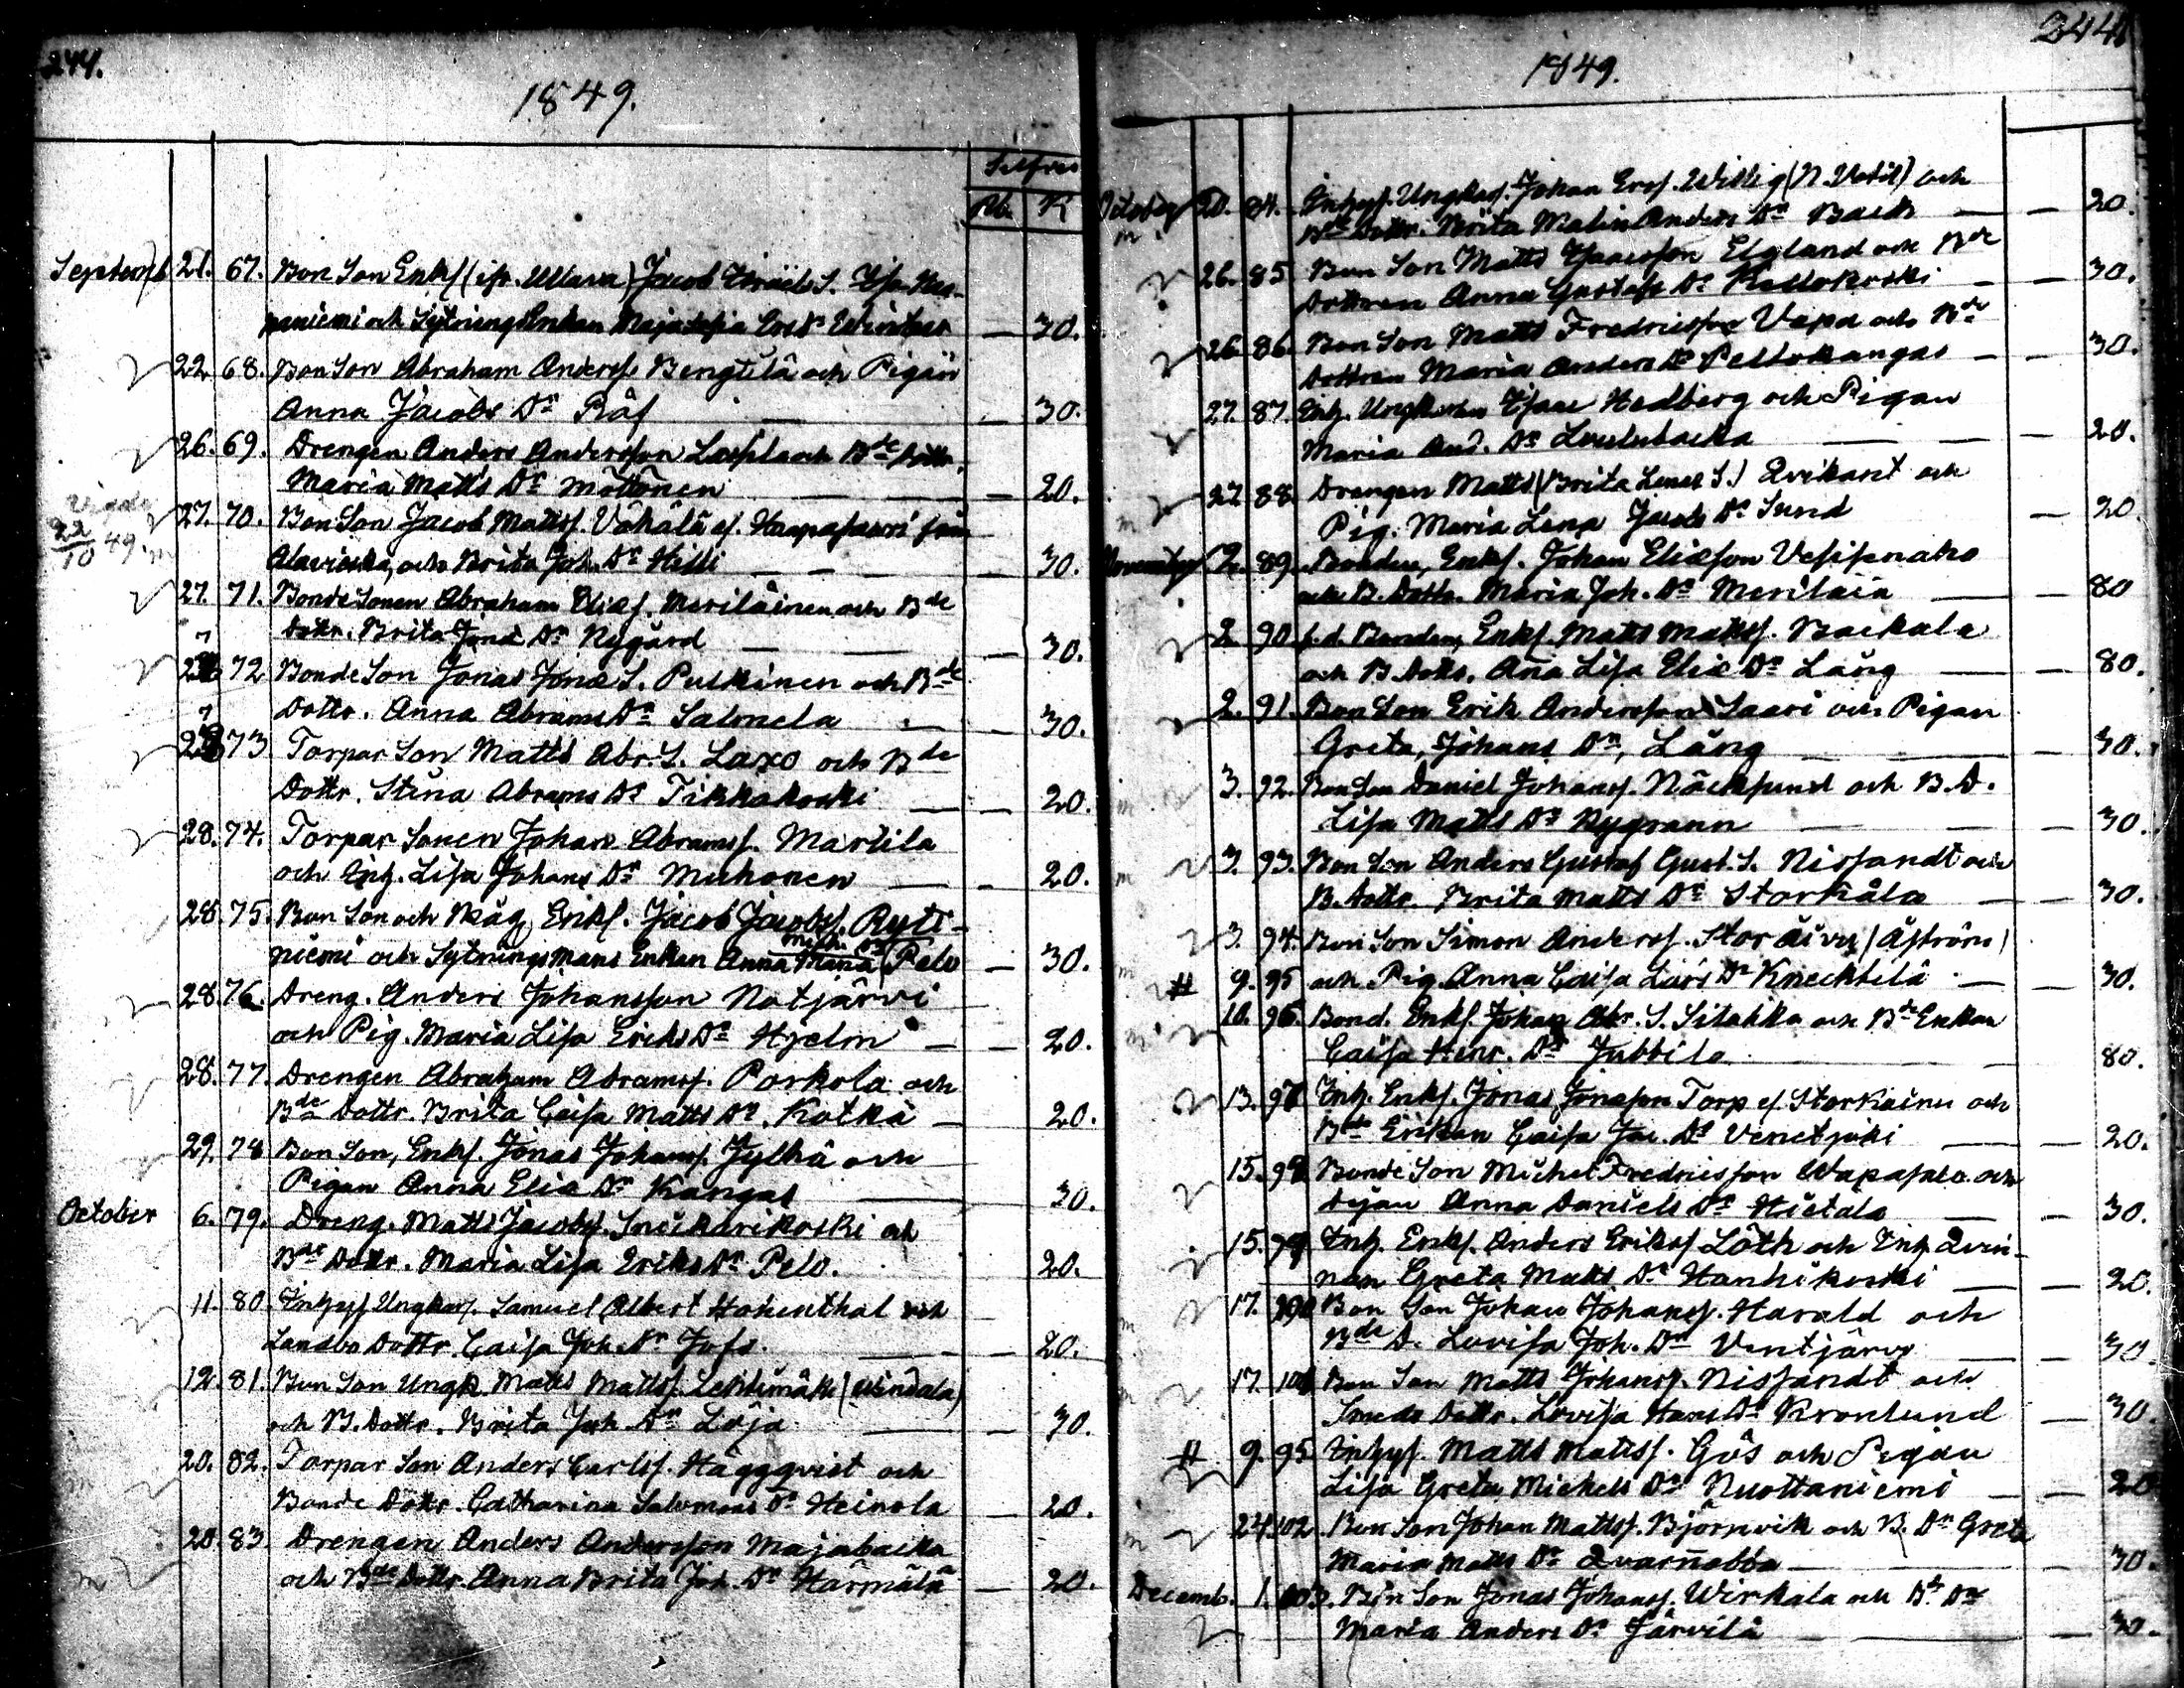 244.
1849.
Silfver
Rbl. K
Septemb 21. 67. Bon Son Enkl (ifr. Ullava) Jacob
och Sytnings Enkan Maja — 30.
22. 68. Bon Son Abraham Anderss. Bengtilä och Pigan
Anna Jacobs Dr Räf — 30.
26. 69. Drengen Anders Andersson och Bde Dottr.
Maria Matts Dr Möttönen — 20.
Vigde
22/10 49.
27. 70. Bon Son Jacob Mattss. Vähälä el. Haapasaari från
Alavieska, och Brita Joh. Dr Hilli — 30.
27. 71. Bonde Sonen Abraham Eliæ S. Meriläinen och Bde
Dottr. Brita Jonæ Dr Nygård — 30.
72 Bonde Son Jonas Jonæ S. Pulkinen och Bde
Dottr. Anna Abrams Dr Salonela — 30.
73 Torpar Son Matts Abr. S. Laxo och Bde
Dottr. Stina Abrams Dr Tikkakoski — 20.
28. 74. Torpar Sonen Johan Abramss. Martila
och Inh. Lisa Johans Dr Muhonen — 20.
28. 75. Bon Son och Måg, Enkl. Jacob Jacobss. Ryti-
niemi och Sytnings mans Enkan Anna Maria Pelo — 30.
28. 76. Dreng. Anders Johansson Natjärvi
och Pig. Maria Lisa Eriks Dr Hjelm — 20.
28. 77. Drengen Abraham Abramss. Porkola och
Bde Dottr. Brita Caisa Matts Dr. Kotka — 20.
29. 78 Bon Son, Enkl. Jonas Johanss. Jylhä och
Pigan Anna Eliæ Dr Kangas — 30.
October 6. 79. Dreng. Matts Jacobss. Snickarikoski och
Bde Dottr. Maria Lisa Eriks Dr Pelo. 20.
11. 80. Inhyss Ungkarl. Samuel Albert Hohenthal och
Landbo Dottr. Caisa Joh. Dr Jofs. — 20.
12. 81. Bon Son Ungk. Matts Mattss. Lehtimäki (Windala)
och B. Dottr. Brita Joh. Dr Löja — 30.
20. 82. Torpar Son Anders Carlss. Häggqvist och
Bonde Dottr. Catharina Salomons Dr Heinola — 20.
20. 83. Drengen Anders Andersson Majabacka
och Bde Dottr. Anna Brita Joh. Dr Härmälä — 20.
244
1849.
October 20. 84. Inhyss. Ungkarl. Johan Erss. Willig (N. Vetil) och
Bde Dottr. Brita Malin Anders Dr Back — 20.
26. 85. Bon Son Matts Isacsson Elgland och Bde
Dottren Anna Gustafs Dr Kellokoski — 30.
26. 86. Bon Son Matts Fredriksson Vapa och Bde
Dottren Maria Anders Dr Pellokangas — 30.
27. 87. Inh. Ungkarlen Isaac Hedberg och Pigan
Maria And. Dr — 20.
27. 88. Drengen Matts (Brita Lenas S.) Qvikant och
Pig. Maria Lena Jacobs Dr Sund — 20.
November 2. 89. Bonden, Enkl. Johan Eliæson Vesisenaho
och B. Dottr. Maria Joh. Dr — 80
2. 90. f.d. Bonden, Enkl. Matts Mattss. Backala
och B. Dottr. Anna Lisa Eliæ Dr Lång — 80.
2. 91. Bon Son Erik Andersson Saari och Pigan
Greta, Johans Dr, Lång — 30.
3. 92. Bon Son Daniel Johanss. Näcksund och B. D.
Lisa Matts Dr Nygrann — 30.
3. 93. Bon Son Anders Gustaf Gust. S. Nissandt och
B. Dottr. Brita Matts Dr Storkåla — 30.
3. 94. Bon Son Simon Anderss. Stor (Åström)
# 9. 95 och Pig. Anna Caisa Lars Dr Knecktilä — 30.
10. 96. Bond. Enkl. Johan Abr. S. Sitahka och Bde Enkan
Caisa Henr. Dr Jubbila 80.
13. 97 Inh. Enkl. Jonas Jonasson Torp el. Storkainu och
Bde Enkan Caisa Jac. Dr Venetjoki — 20.
15. 98 Bonde Son Michel Fredricsson Wapasalo och
Anna Daniels Dr Hietala — 30.
15. 99 Inh. Enkl. Anders Erikss. Löth och Inh. Qvin-
nan Greta Matts Dr Hanhikoski — 20.
17. 100 Bon Son Johan Johanss. Harald och
Bde D. Lovisa Joh. Dr Ventjärvi — 30.
17. 101 Bon Son Matts Johanss. Nissandt och
Smeds Dottr. Lovisa Hans Dr Kronlund — 30.
# 9. 95 Inhyss. Matts Mattss. Gös och Pigan
Lisa Greta Michels Dr Nuottaniemi — 20
24. 102. Bon Son Johan Mattss. Björnvik och B. Dr Greta
Maria Matts Dr Qvarnabba — 30.
Decemb. 1. 103. Bon Son Jonas Johanss. Wirkala och Bde Dr
Maria Anders Dr Järvilä — 30.